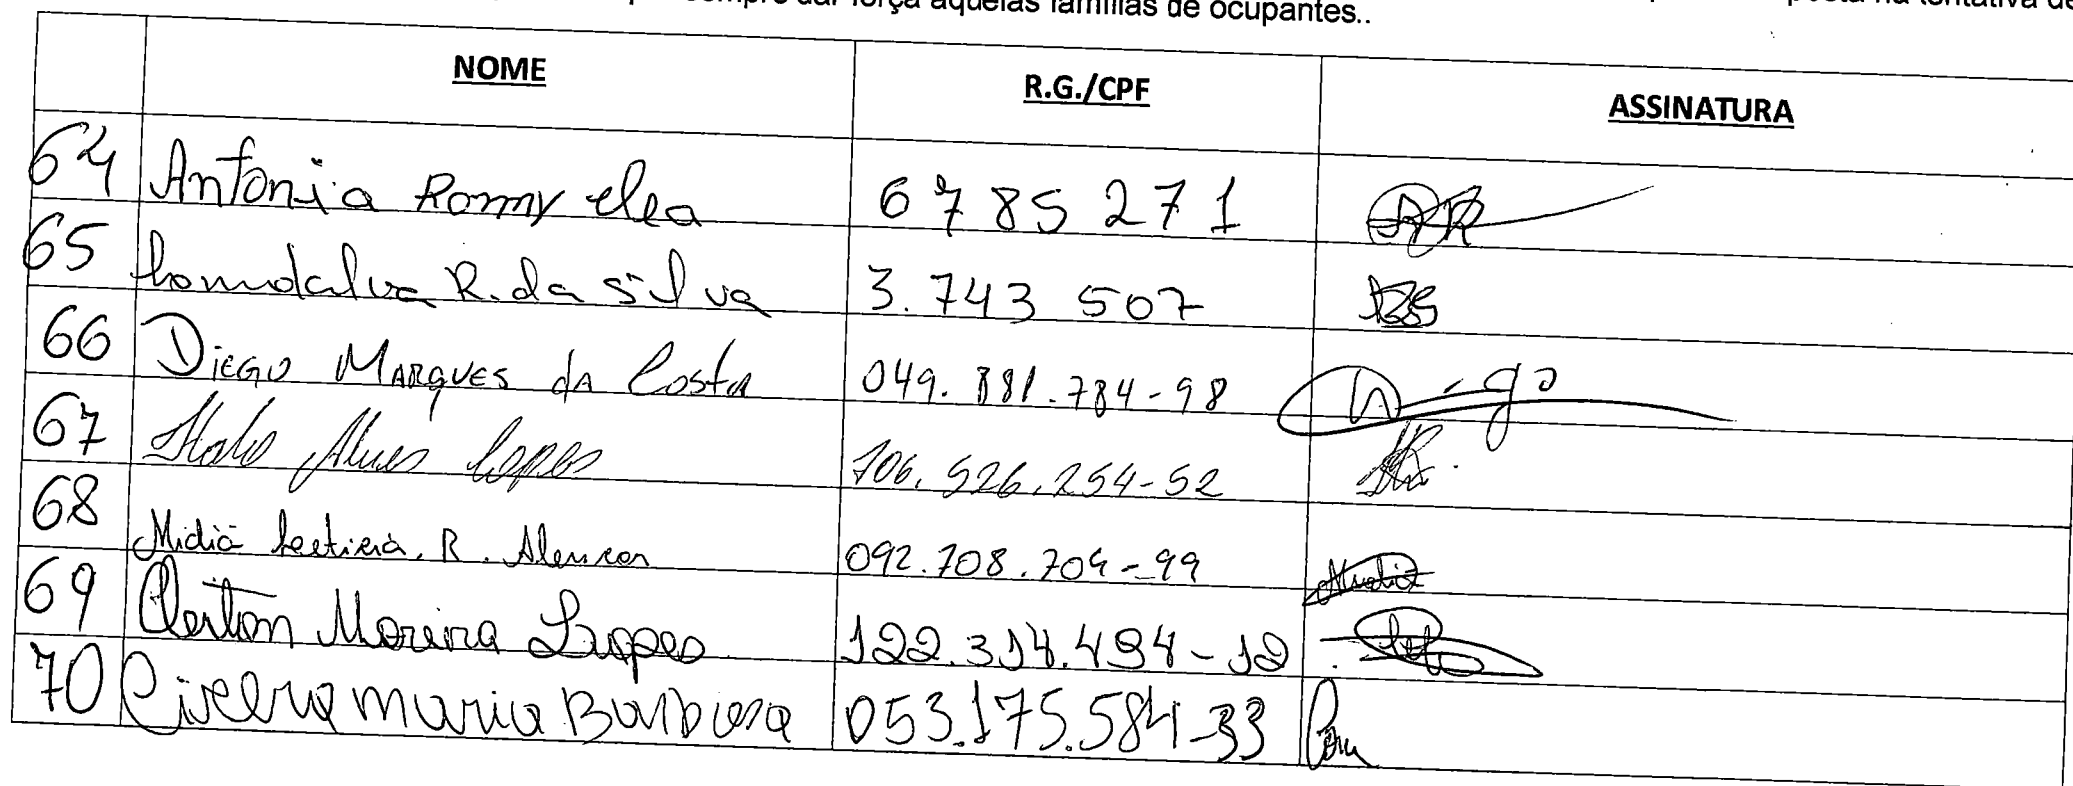 sempre dar força aquelas famílias de ocupantes..
na tentativa de
NOME R.G./CPF ASSINATURA
64 Antonia Romy elea 6785271 AR
65 R. da Silva 3.743 507
66 Diego Marques da Costa 049.881.784-98 D-go
67 Italo Alves Lopes 706.526.254-52
68 Midiã R. Alencar 092.708.704-99 Midiã
69 Cleiton Moreira Lopes 122.314.494-12
70 Cicera maria Barbosa 053.175.584-33